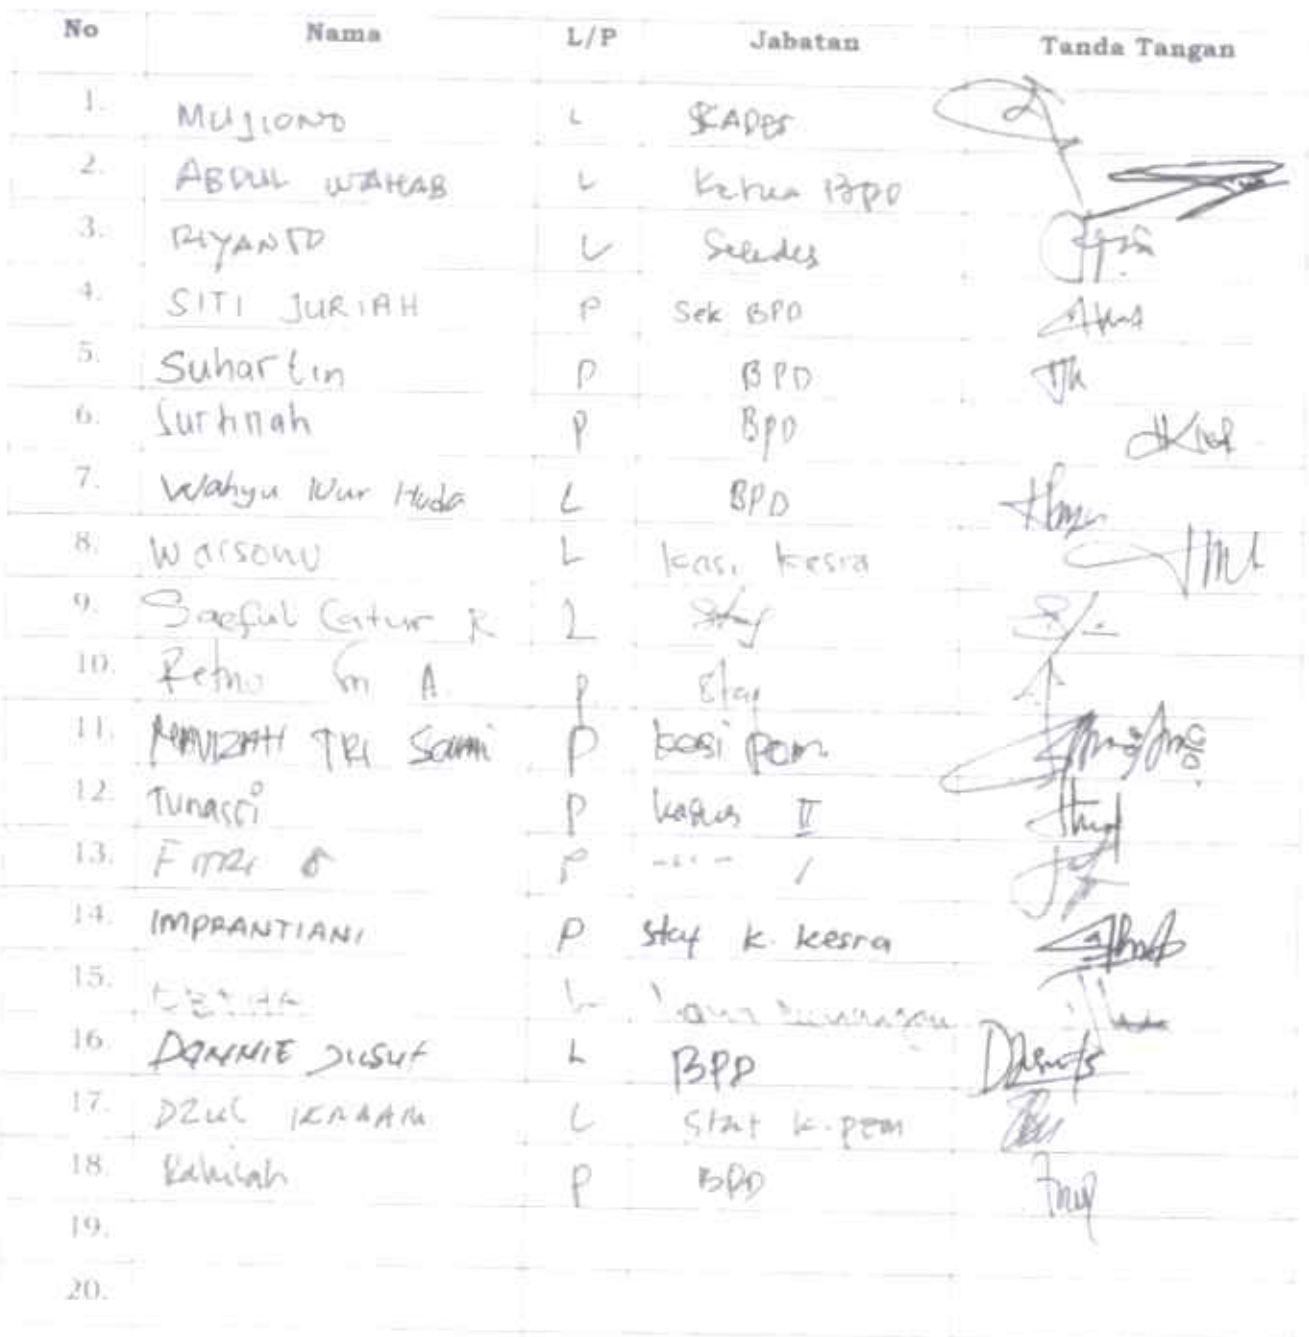 No Nama L/P Jabatan Tanda Tangan
1. MUJIONO L KADES
2. ABDUL WAHAB L Ketua BPD
3. RIYANTO L Sekdes
4. SITI JURIAH P Sek BPD
5. Suhartin P BPD
6. P BPD
7. Wahyu Nur Huda L BPD
8. Warsono L Kasi Kesra
9. Saeful Catur R L Staf
10. Retno A. P Staf
11. TRI P kasi pem
12. P II
13. FITRI P
14. IMPRANTIANI P staf k. kesra
15. L
16. DANNIE JUSUF L BPD
17. DZUL IKRAAM L Staf k. pem
18. P BPD
19.
20.